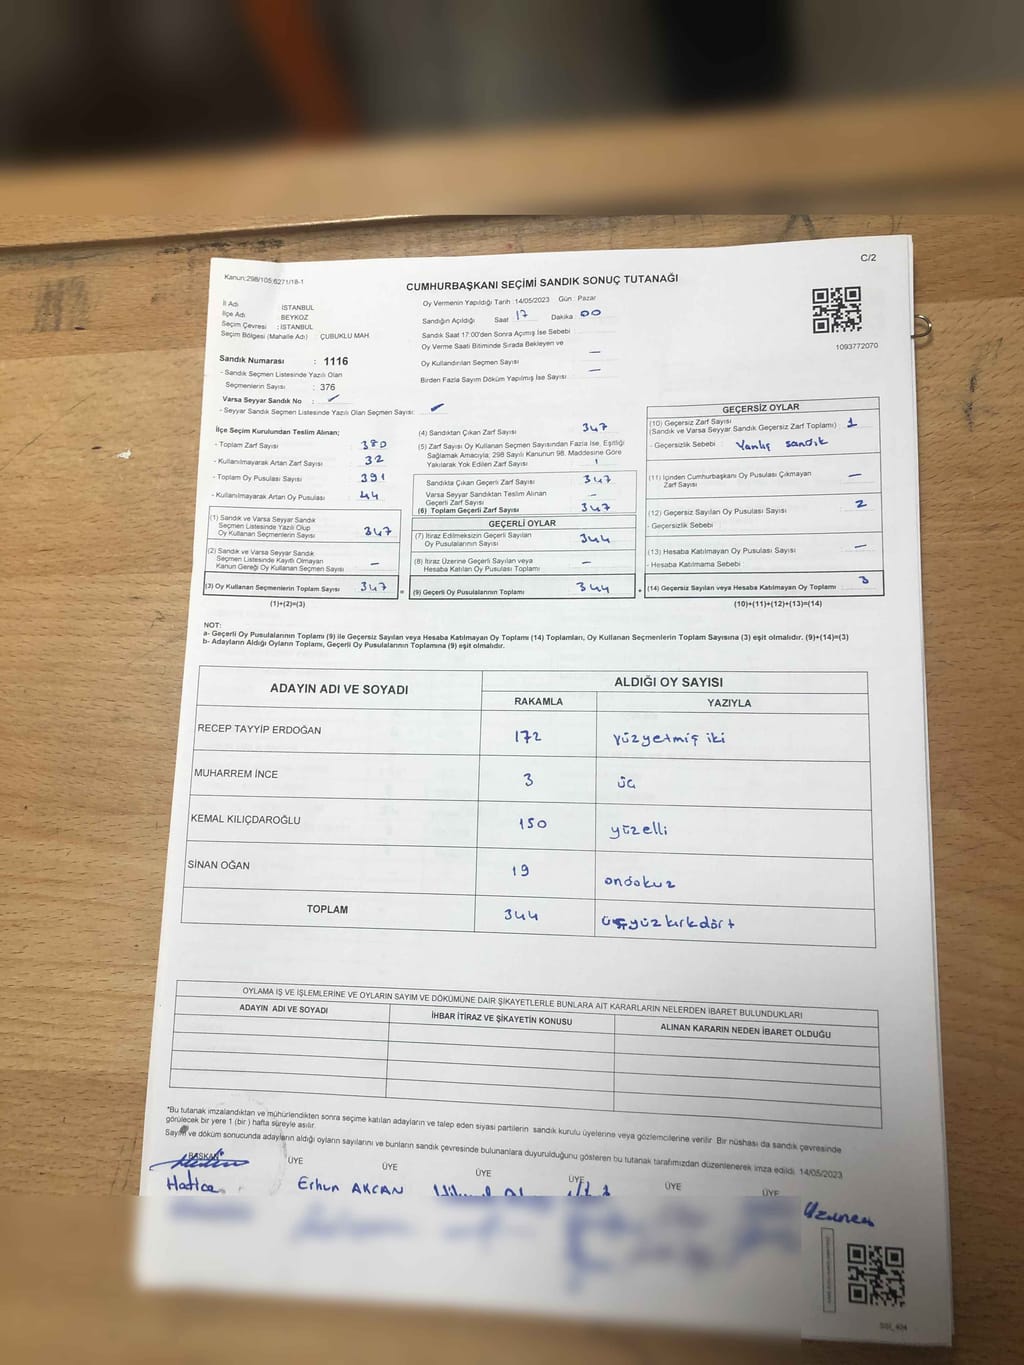 C/2
Kanun:298/105;6271/18-1
CUMHURBAŞKANI SEÇİMİ SANDIK SONUÇ TUTANAĞI
İl Adı İSTANBUL
İlçe Adı BEYKOZ
Seçim Çevresi : İSTANBUL
Seçim Bölgesi (Mahalle Adı) ÇUBUKLU MAH
Sandık Numarası : 1116
- Sandık Seçmen Listesinde Yazılı Olan
Seçmenlerin Sayısı : 376
Varsa Seyyar Sandık No :
- Seyyar Sandık Seçmen Listesinde Yazılı Olan Seçmen Sayısı:
Oy Vermenin Yapıldığı Tarih :14/05/2023 Gün : Pazar
Sandığın Açıldığı Saat 17 Dakika 00
Sandık Saat 17:00'den Sonra Açımış İse Sebebi
Oy Verme Saati Bitiminde Sırada Bekleyen ve
Oy Kullandırılan Seçmen Sayısı —
Birden Fazla Sayım Döküm Yapılmış İse Sayısı —
1093772070
İlçe Seçim Kurulundan Teslim Alınan;
- Toplam Zarf Sayısı 380
- Kullanılmayarak Artan Zarf Sayısı 32
- Toplam Oy Pusulası Sayısı 391
- Kullanılmayarak Artan Oy Pusulası 44
(1) Sandık ve Varsa Seyyar Sandık
Seçmen Listesinde Yazılı Olup
Oy Kullanan Seçmenlerin Sayısı 347
(2) Sandık ve Varsa Seyyar Sandık
Seçmen Listesinde Kayıtlı Olmayan
Kanun Gereği Oy Kullanan Seçmen Sayısı —
(3) Oy Kullanan Seçmenlerin Toplam Sayısı 347
(1)+(2)=(3)
(4) Sandıktan Çıkan Zarf Sayısı 347
(5) Zarf Sayısı Oy Kullanan Seçmen Sayısından Fazla İse, Eşitliği
Sağlamak Amacıyla; 298 Sayılı Kanunun 98. Maddesine Göre
Yakılarak Yok Edilen Zarf Sayısı
Sandıkta Çıkan Geçerli Zarf Sayısı 347
Varsa Seyyar Sandıktan Teslim Alınan
Geçerli Zarf Sayısı —
(6) Toplam Geçerli Zarf Sayısı 347
GEÇERLİ OYLAR
(7) İtiraz Edilmeksizin Geçerli Sayılan
Oy Pusulalarının Sayısı 344
(8) İtiraz Üzerine Geçerli Sayılan veya
Hesaba Katılan Oy Pusulası Toplamı —
= (9) Geçerli Oy Pusulalarının Toplamı 344
GEÇERSİZ OYLAR
(10) Geçersiz Zarf Sayısı
(Sandık ve Varsa Seyyar Sandık Geçersiz Zarf Toplamı) 1
- Geçersizlik Sebebi : Yanlış sandık
(11) İçinden Cumhurbaşkanı Oy Pusulası Çıkmayan
Zarf Sayısı —
(12) Geçersiz Sayılan Oy Pusulası Sayısı 2
- Geçersizlik Sebebi
(13) Hesaba Katılmayan Oy Pusulası Sayısı —
- Hesaba Katılmama Sebebi :
+ (14) Geçersiz Sayılan veya Hesaba Katılmayan Oy Toplamı 3
(10)+(11)+(12)+(13)=(14)
NOT:
a- Geçerli Oy Pusulalarının Toplamı (9) ile Geçersiz Sayılan veya Hesaba Katılmayan Oy Toplamı (14) Toplamları, Oy Kullanan Seçmenlerin Toplam Sayısına (3) eşit olmalıdır. (9)+(14)=(3)
b- Adayların Aldığı Oyların Toplamı, Geçerli Oy Pusulalarının Toplamına (9) eşit olmalıdır.
ADAYIN ADI VE SOYADI ALDIĞI OY SAYISI
RAKAMLA YAZIYLA
RECEP TAYYİP ERDOĞAN 172 yüzyetmiş iki
MUHARREM İNCE 3 üç
KEMAL KILIÇDAROĞLU 150 yüzelli
SİNAN OĞAN 19 ondokuz
TOPLAM 344 üçyüzkırkdört
OYLAMA İŞ VE İŞLEMLERİNE VE OYLARIN SAYIM VE DÖKÜMÜNE DAİR ŞİKAYETLERLE BUNLARA AİT KARARLARIN NELERDEN İBARET BULUNDUKLARI
ADAYIN ADI VE SOYADI İHBAR İTİRAZ VE ŞİKAYETİN KONUSU ALINAN KARARIN NEDEN İBARET OLDUĞU
*Bu tutanak imzalandıktan ve mühürlendikten sonra seçime katılan adayların ve talep eden siyasi partilerin sandık kurulu üyelerine veya gözlemcilerine verilir. Bir nüshası da sandık çevresinde
görülecek bir yere 1 (bir) hafta süreyle asılır.
Sayım ve döküm sonucunda adayların aldığı oyların sayılarını ve bunların sandık çevresinde bulunanlara duyurulduğunu gösteren bu tutanak tarafımızdan düzenlenerek imza edildi. 14/05/2023
BAŞKAN ÜYE ÜYE ÜYE ÜYE ÜYE ÜYE
Hatice Erhun AKCAN